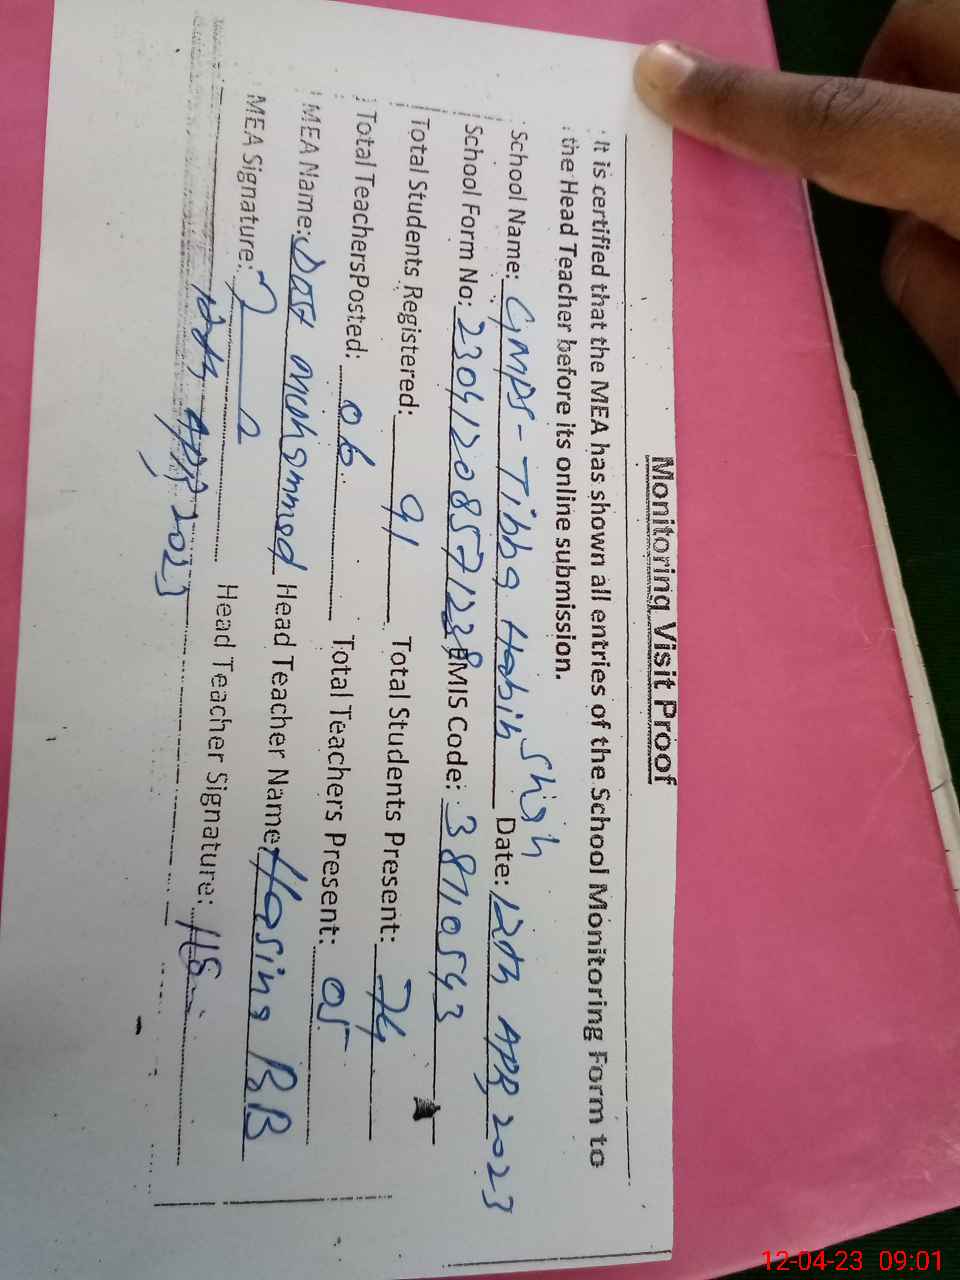 Monitoring Visit Proof
It is certified that the MEA has shown all entries of the School Monitoring Form to
the Head Teacher before its online submission.
School Name: GMPS-Tibba Habib Shah Date: 12th APR, 2023
School Form No: 2304120857123 EMIS Code: 38710543
Total Students Registered: 91 Total Students Present: 74
Total TeachersPosted: 06 Total Teachers Present: 05
MEA Name: Dost Muhammed Head Teacher Name: Hasina BB
MEA Signature: Head Teacher Signature:
12th APR, 2023
12-04-23 09:01